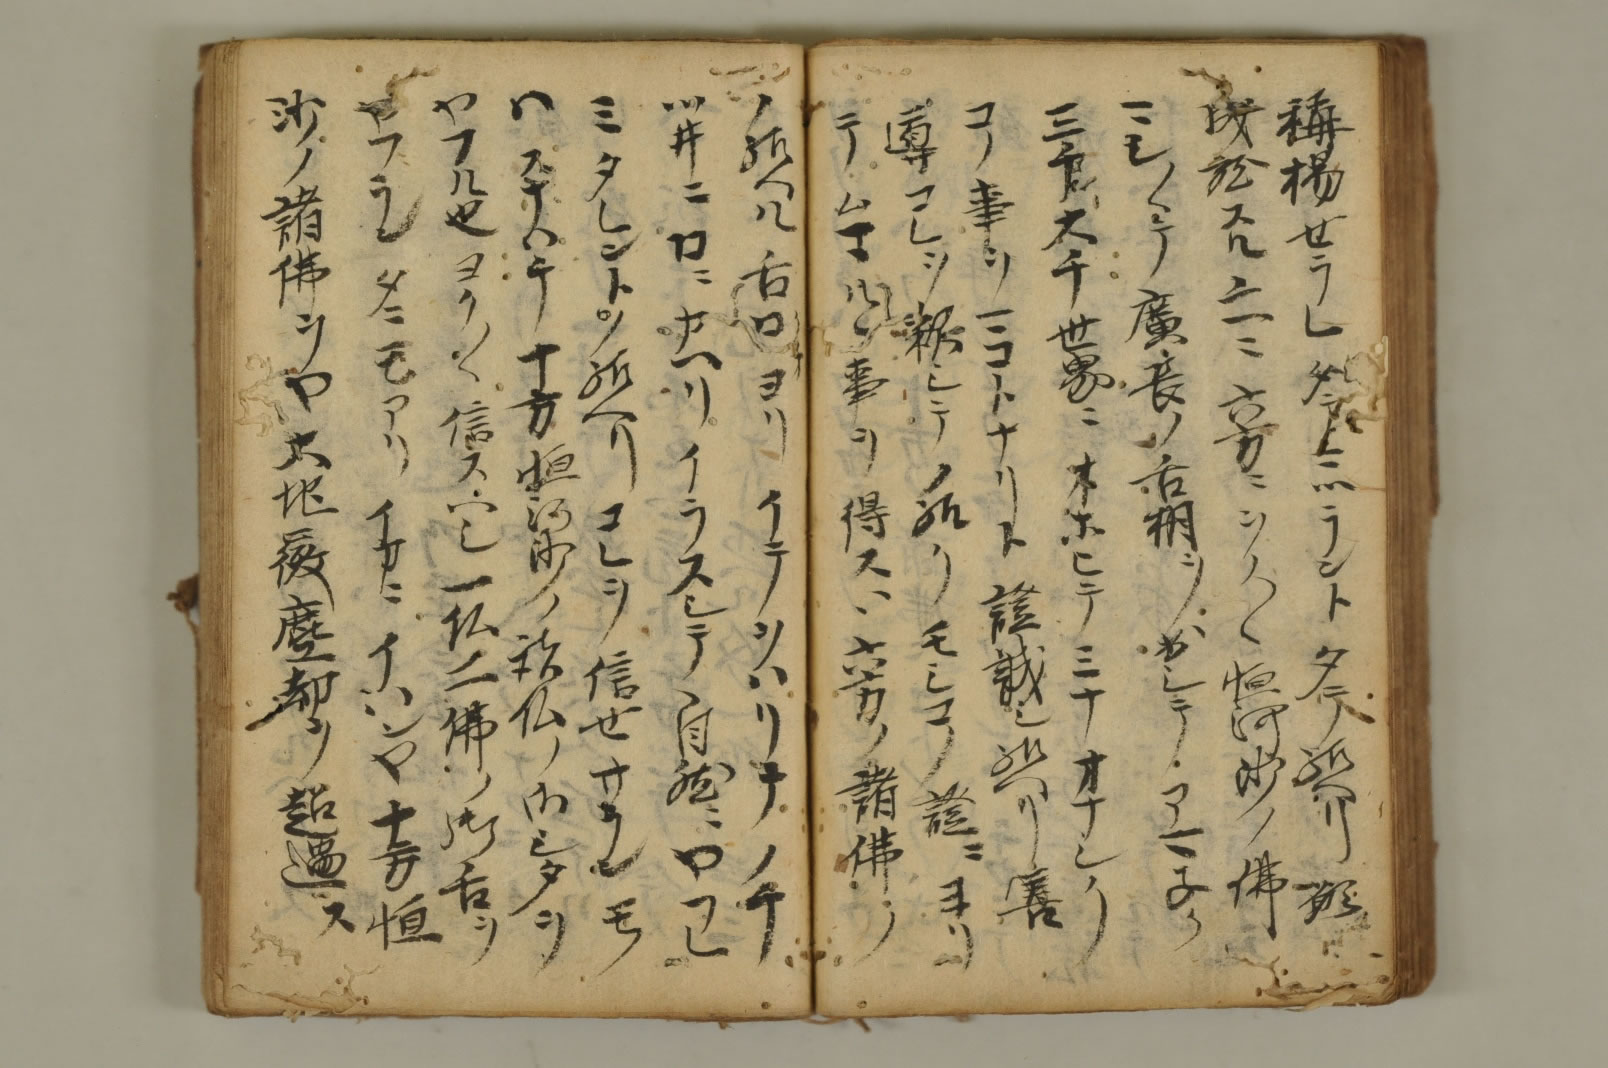 稱揚セラレムトタテ給ヘリ願
成就スル上ニ六方ニヲノヽヽ恒河沙ノ佛
マシヽヽテ廣長ノ舌相ヲ出シテアマネク
三千大千世界ニオホヒテミナオナシク
コノ事ヲマコトナリト證誠シ給ヘリ善
導コレヲ釋シテノ給クモシコノ證ニヨリ
テムマルヽ事ヲ得スハ六方ノ諸佛ノ
ノ給ヘル舌口ヨリイテヲハリテノチ
ツ井ニ口ニカヘリイラスシテ自然ニヤフレ
ミタレント給ヘリコレヲ信セサランモ
ノハスナハチ十方恒河沙ノ諸仏ノ御シタヲ
ヤフル也ヨクヽヽ信スヘシ一仏二佛ノ御舌ヲ
ヤフランタニモアリイカニイハンヤ十方恒
沙ノ諸佛ヲヤ大地微塵劫ヲ超過ス